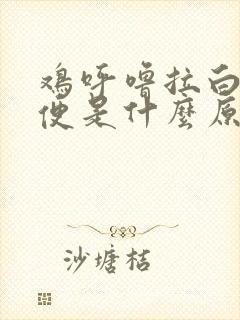 鸡呼噜拉白
便是什麼原
沙塘桔